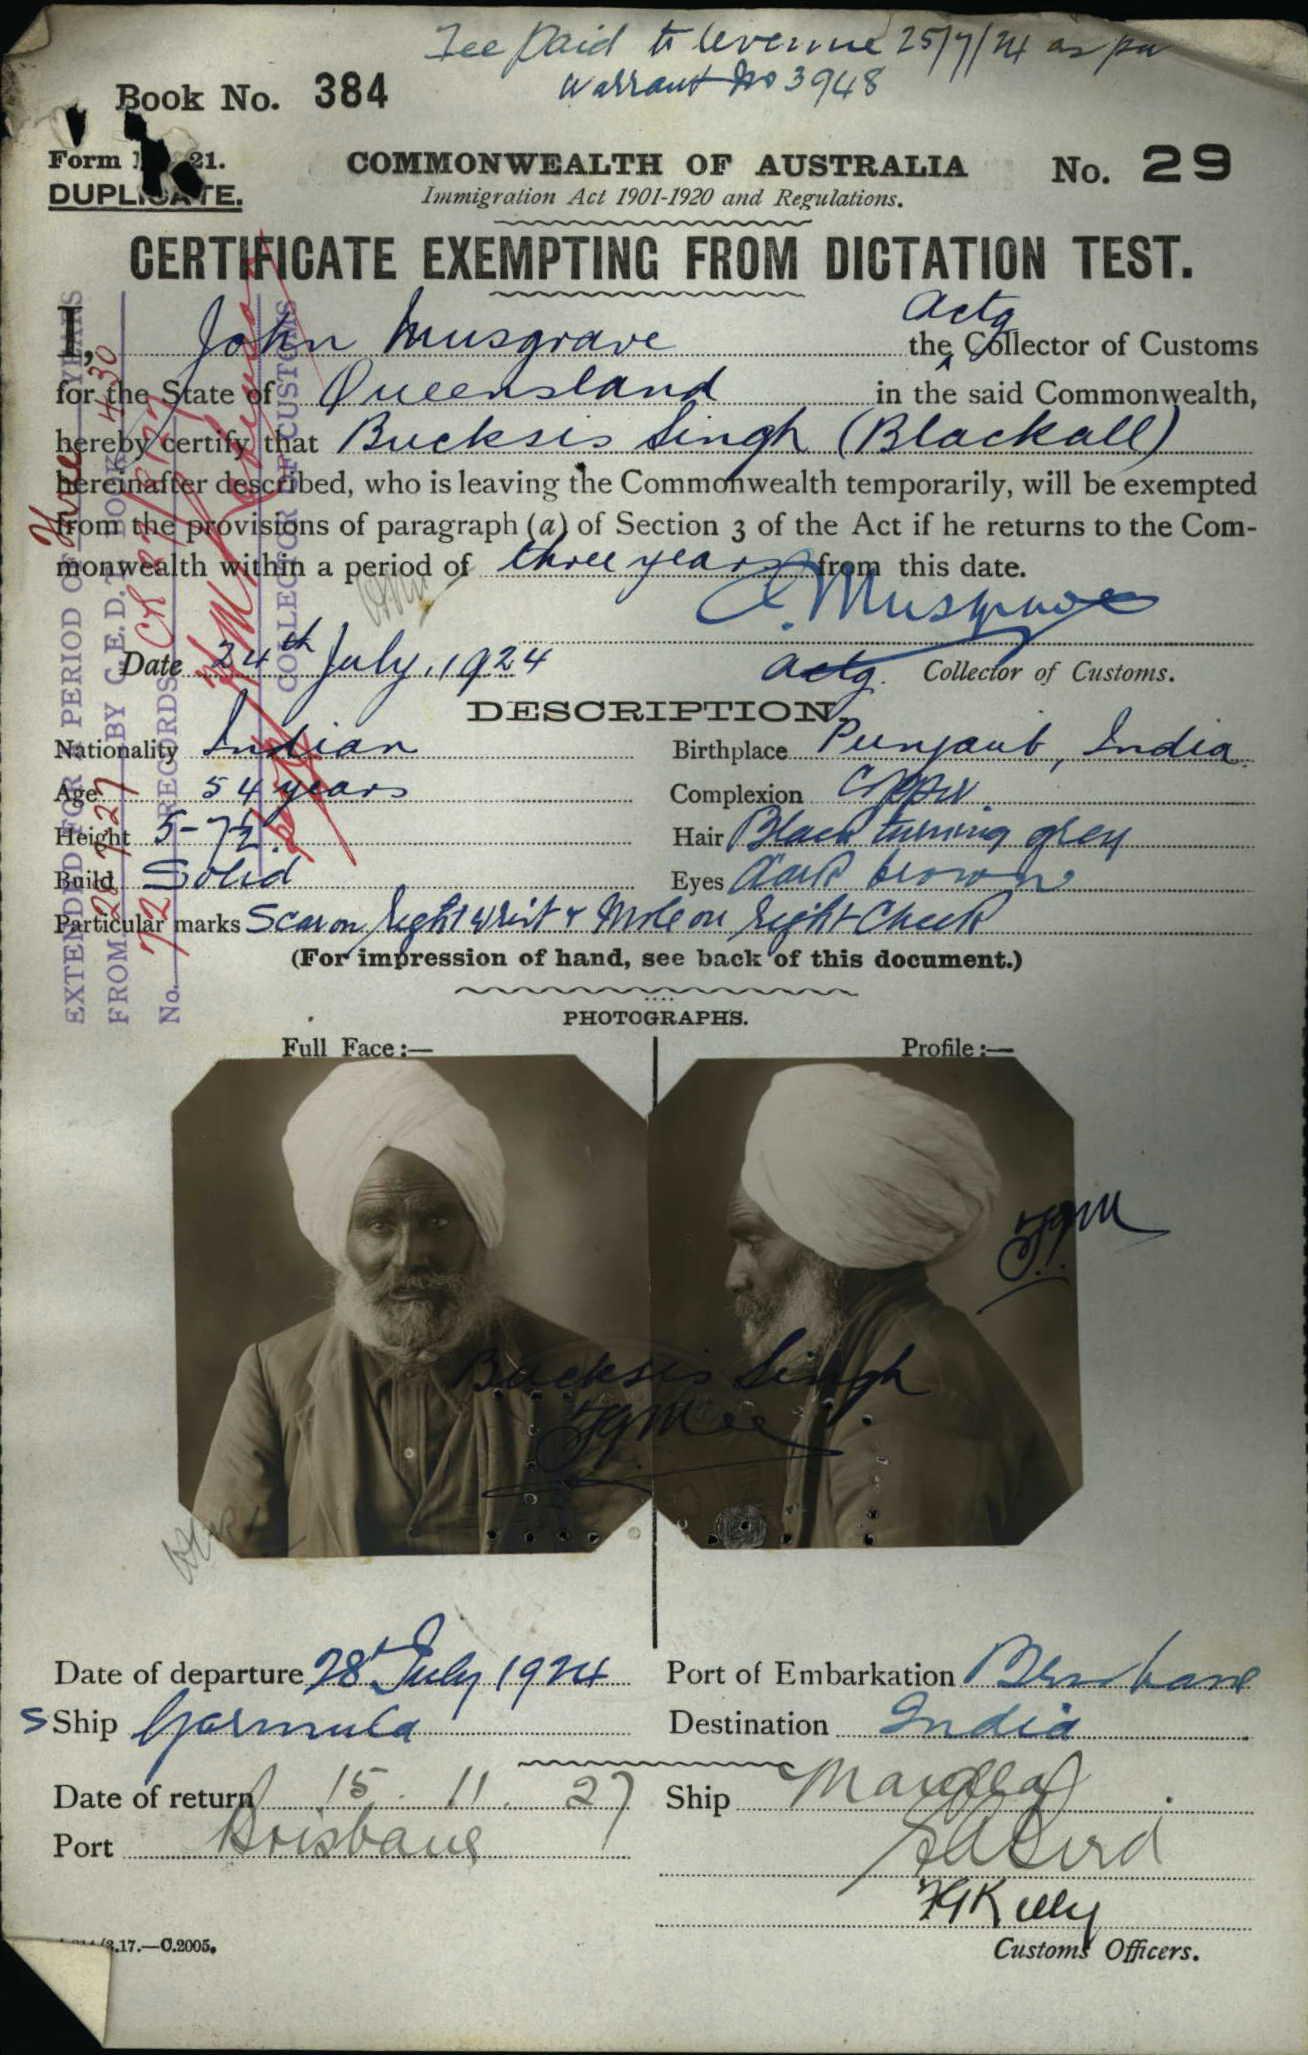 Fee paid to revenue 25/7/24 as per
Warrant No 3948
Book No. 384
Form 21.
DUPLICATE.
COMMONWEALTH OF AUSTRALIA
No. 29
Immigration Act 1901-1920 and Regulations.
CERTIFICATE EXEMPTING FROM DICTATION TEST.
I, John Musgrave the Actg Collector of Customs
for the State of Queensland in the said Commonwealth,
hereby certify that Bucksis Singh (Blackall)
hereinafter described, who is leaving the Commonwealth temporarily, will be exempted
from the provisions of paragraph (a) of Section 3 of the Act if he returns to the Com-
monwealth within a period of three years from this date.
J. Musgrave
Date 24th July, 1924
Actg. Collector of Customs.
EXTENDED FOR A PERIOD OF Three YEARS
FROM 28.7.27 BY C.E.D.T. BOOK 430
No. 72 RECORDS
COLLECTOR OF CUSTOMS
DESCRIPTION.
Nationality Indian
Birthplace Punjaub, India.
Age 54 years
Complexion Copper.
Height 5-7½.
Hair Black turning grey
Build Solid
Eyes dark brown
Particular marks Scar on right wrist & Mole on right Cheek
(For impression of hand, see back of this document.)
PHOTOGRAPHS.
Full Face:—
Profile:—
Bucksis Singh
Date of departure 28th July 1924
Port of Embarkation Brisbane
S Ship Garmula
Destination India
Date of return 15. 11. 27
Ship
Port Brisbane
Bird
Kelly
3.17.—C.2005.
Customs Officers.